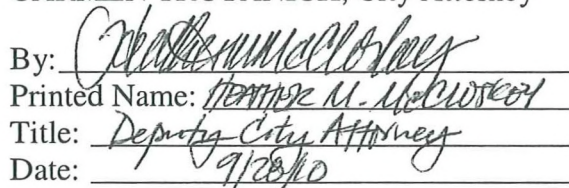 CARMEN TRUTANICH, City Attorney
By:
Printed Name: HEATHER M. McCLOSKEY
Title: Deputy City Attorney
Date: 9/28/10